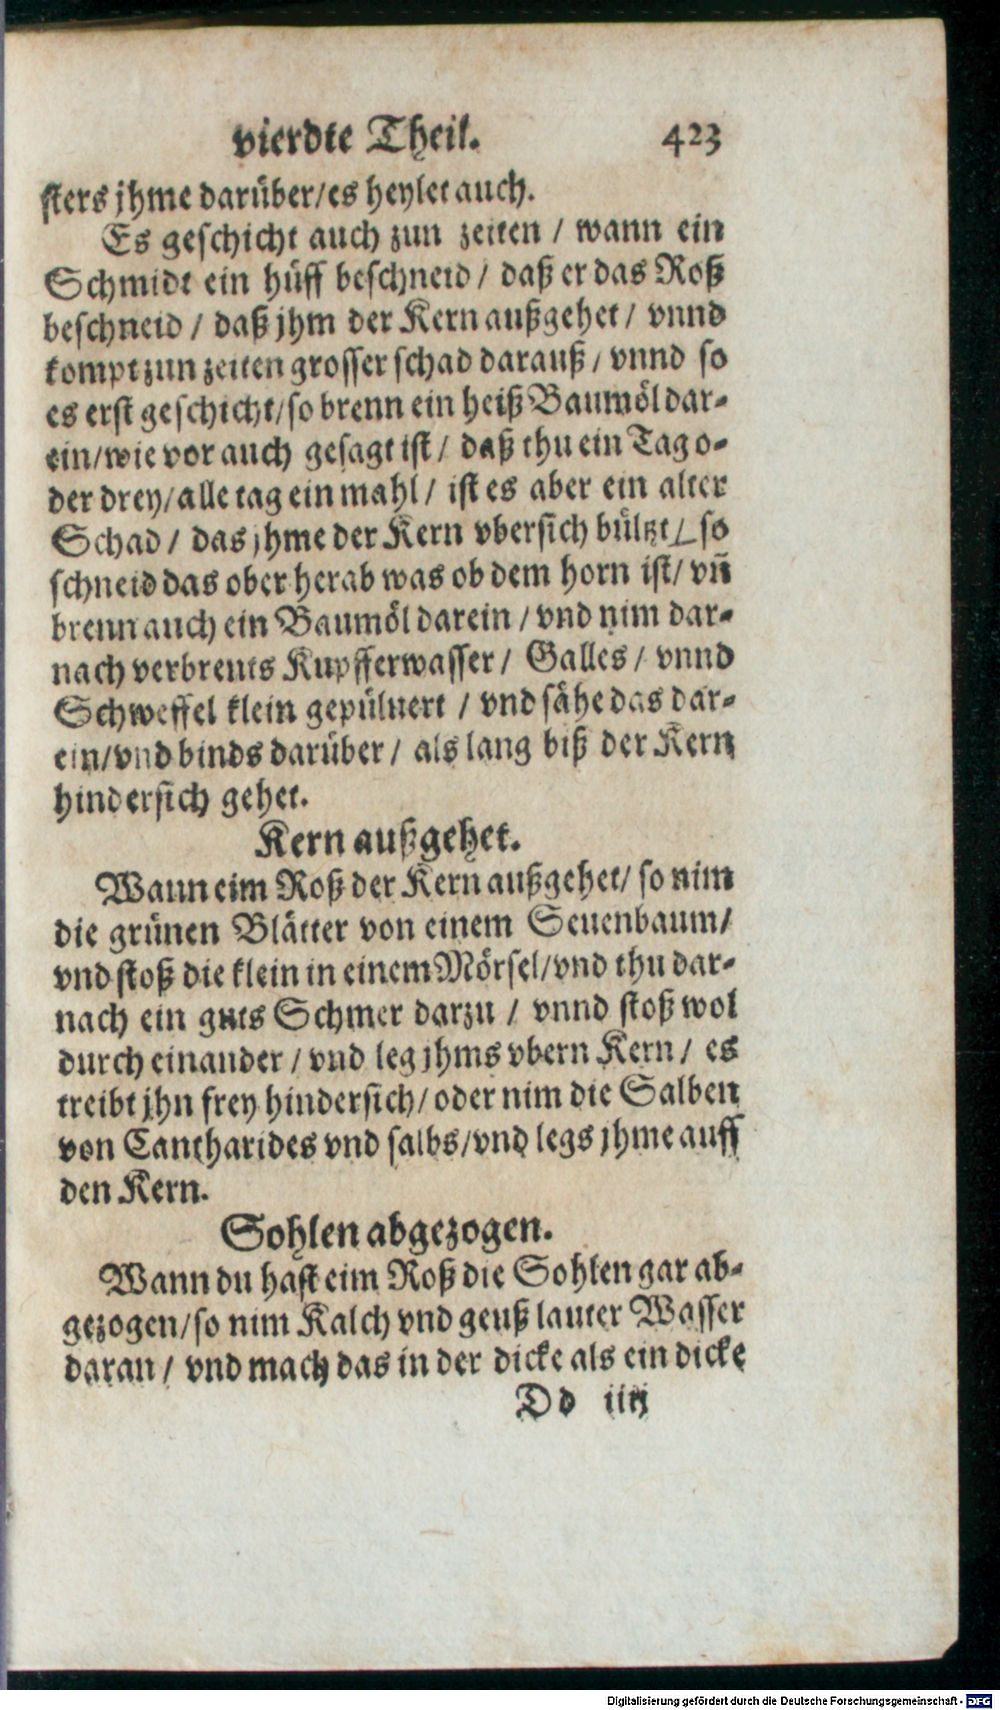 vierdte Theil. 423
sters jhme darüber/es heylet auch.
Es geschicht auch zun zeiten / wann ein
Schmidt ein hüff beschneid / daß er das Roß
beschneid / daß jhm der Kern außgehet / vnnd
kompt zun zeiten grosser schad darauß / vnnd so
es erst geschicht/so brenn ein heiß Baumöl dar-
ein/wie vor auch gesagt ist / daß thu ein Tag o-
der drey/alle tag ein mahl / ist es aber ein alter
Schad / das jhme der Kern vbersich bültzt / so
schneid das ober herab was ob dem horn ist/ vñ
brenn auch ein Baumöl darein / vnd nim dar-
nach verbrents Kupfferwasser / Galles / vnnd
Schweffel klein gepüluert / vnd sähe das dar-
ein/vnd binds darüber / als lang biß der Kern
hindersich gehet.
Kern außgehet.
Wann eim Roß der Kern außgehet/ so nim
die grünen Blätter von einem Seuenbaum/
vnd stoß die klein in einem Mörsel/vnd thu dar-
nach ein guts Schmer darzu / vnnd stoß wol
durch einander / vnd leg jhms vbern Kern / es
treibt jhn frey hindersich/ oder nim die Salben
von Cantharides vnd salbs/vnd legs jhme auff
den Kern.
Sohlen abgezogen.
Wann du hast eim Roß die Sohlen gar ab-
gezogen/so nim Kalch vnd geuß lauter Wasser
daran / vnd mach das in der dicke als ein dicke
Dd iiij
Digitalisierung gefördert durch die Deutsche Forschungsgemeinschaft - DFG